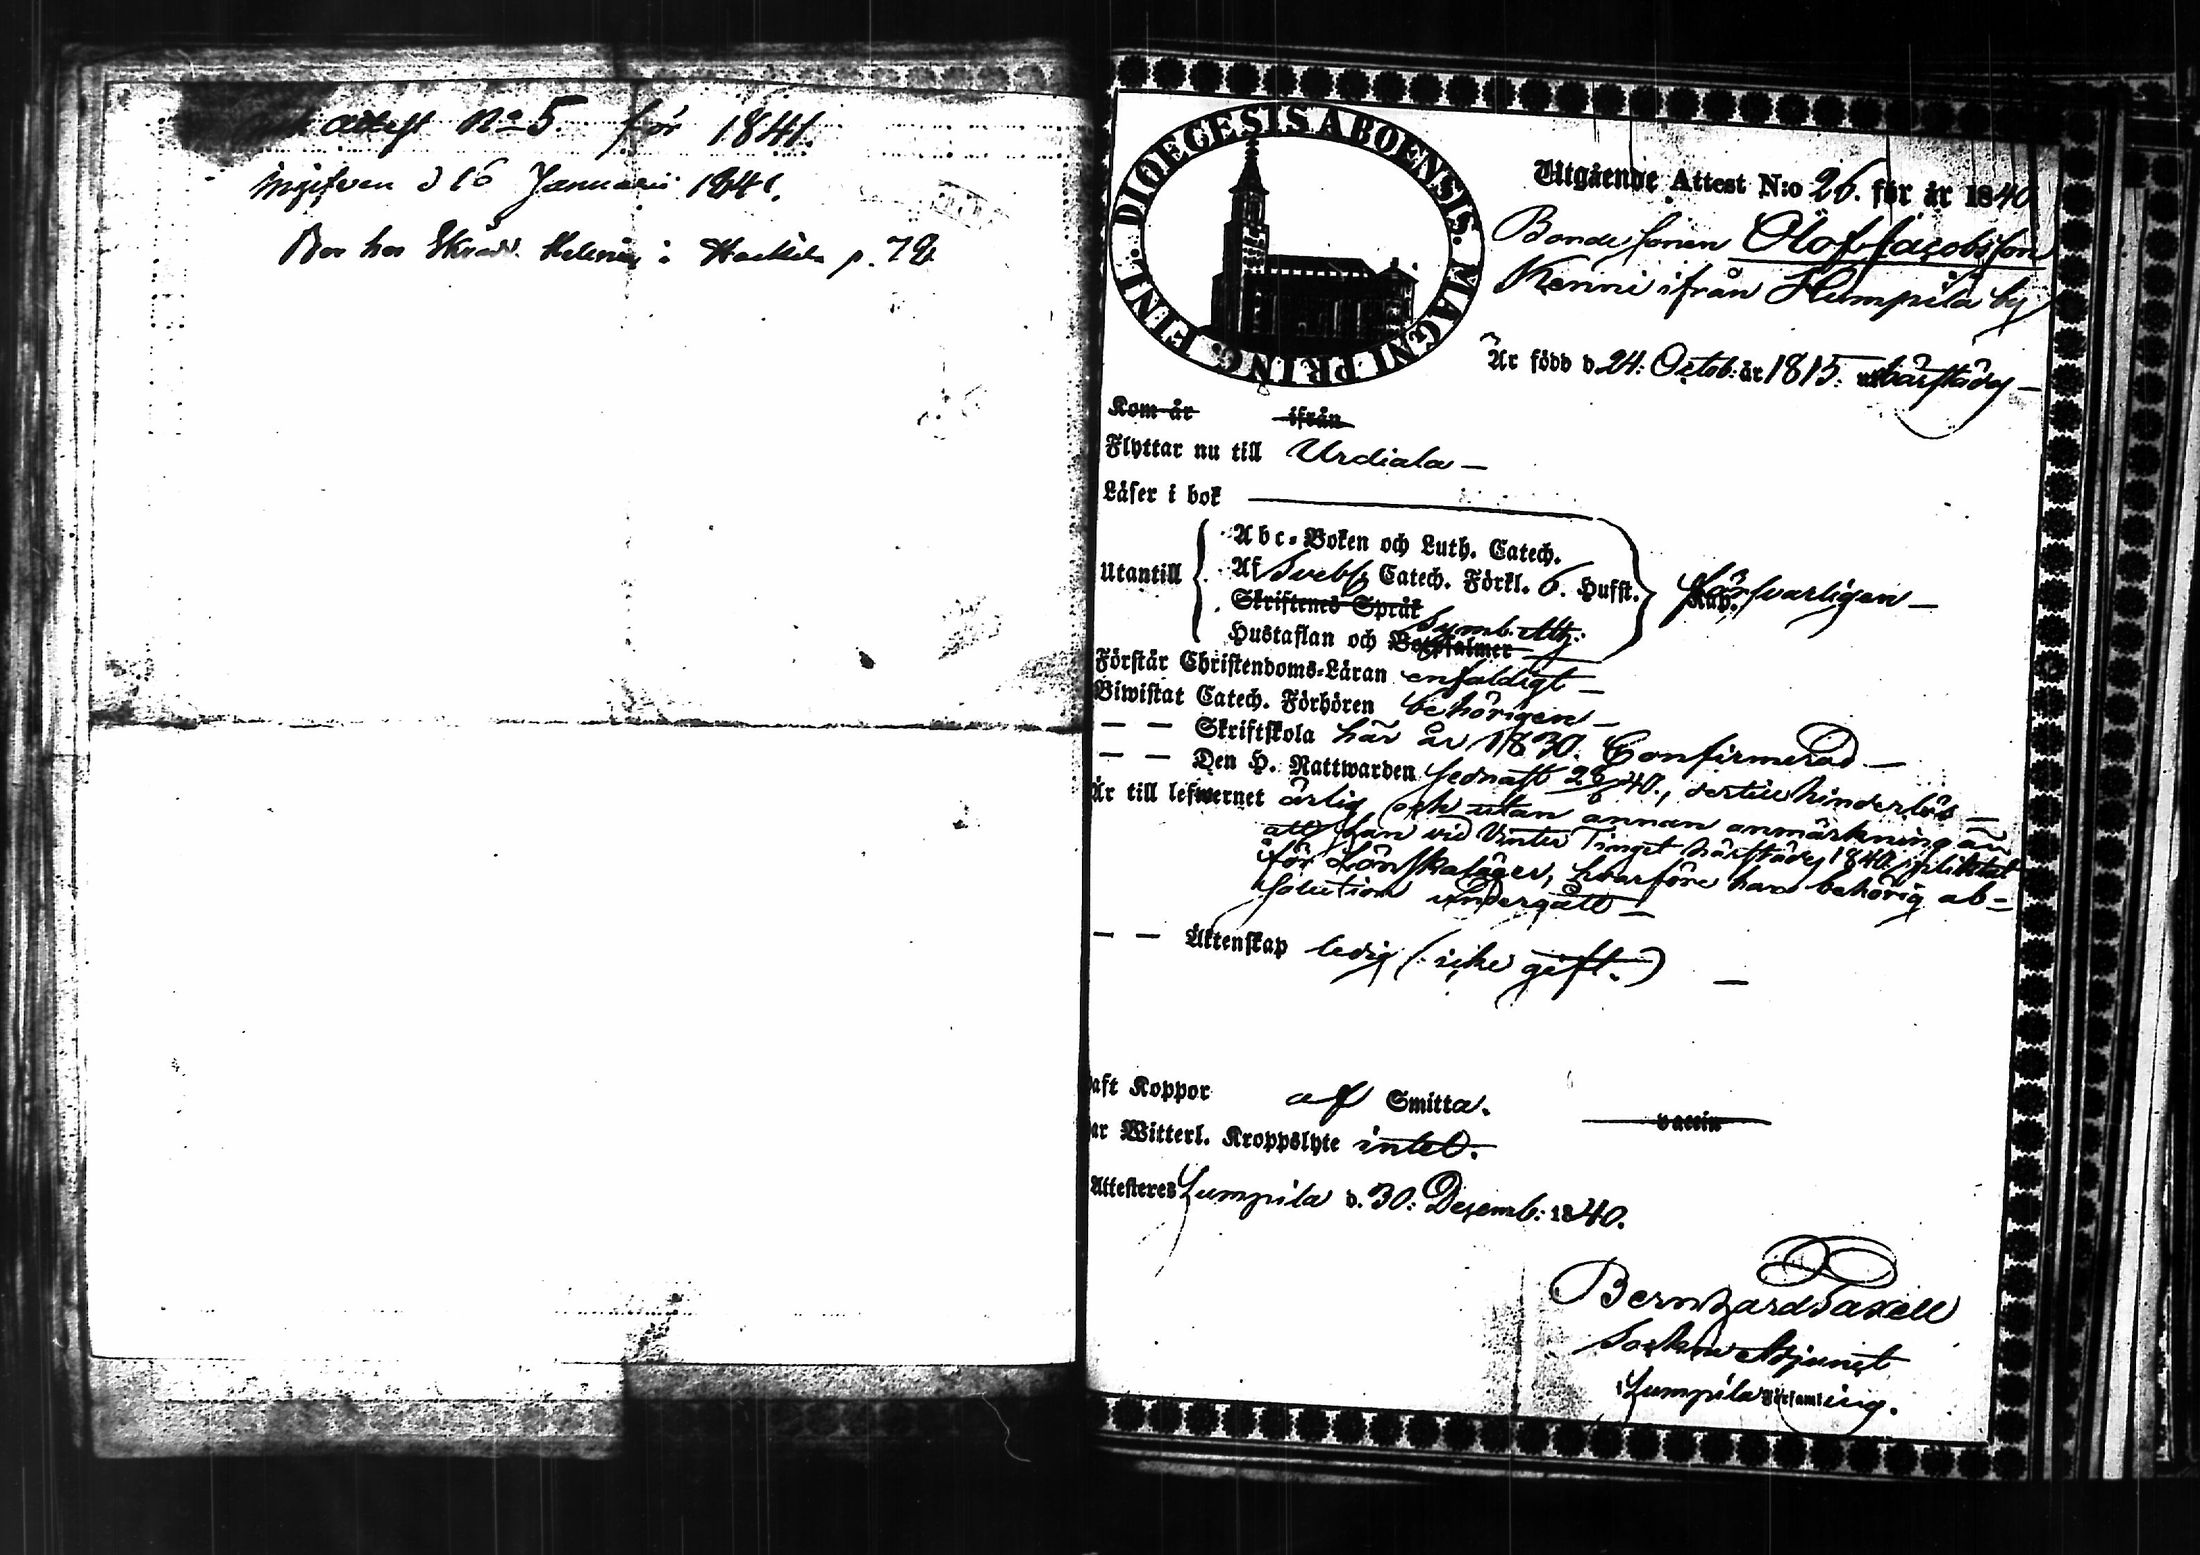 attest No 5. för 1841.
ingifven d 16 Januarii 1841.
Bor hos i p. 72
DIOECESIS ABOENSIS. MAGNI PRINC. FINL.
Utgående Attest N:o 26. för år 1840
Bondesonen Olof Jacobsson
Kenni ifrån Humpila by
Är född d. 24: Octob: år 1815. härstädes —
Kom år ifrån
Flyttar nu till Urdiala —
Läser i bok
Utantill
Abc-Boken och Luth. Catech.
Af Svebel: Catech. Förkl. 6. Hufst.
Skriftenes Språk
Symb. Ath:
Hustaflan och Botpsalmer
försvarligen —
Kap.
Förstår Christendoms-Läran enfaldigt —
Biwistat Catech. Förhören behörigen —
— — Skriftskola här år 1830. Confirmerad —
— — Den H. Nattwarden sednast 28/6 40., dertill hinderlös —
Är till lefwernet ärlig och utan annan anmärkning än
att han vid Vinter Tinget härstädes 1840 pliktat
för Lönskaläger, hvarföre han behörig ab-
solution undergått —
— — Äktenskap ledig (icke gift.) —
Haft Koppor af Smitta. vaccin
Har Witterl. Kroppslyte intet.
Attesteres Humpila d. 30: Decemb: 1840.
Bernhard Taxell
Sockne Adjunct
i Humpila Församling.